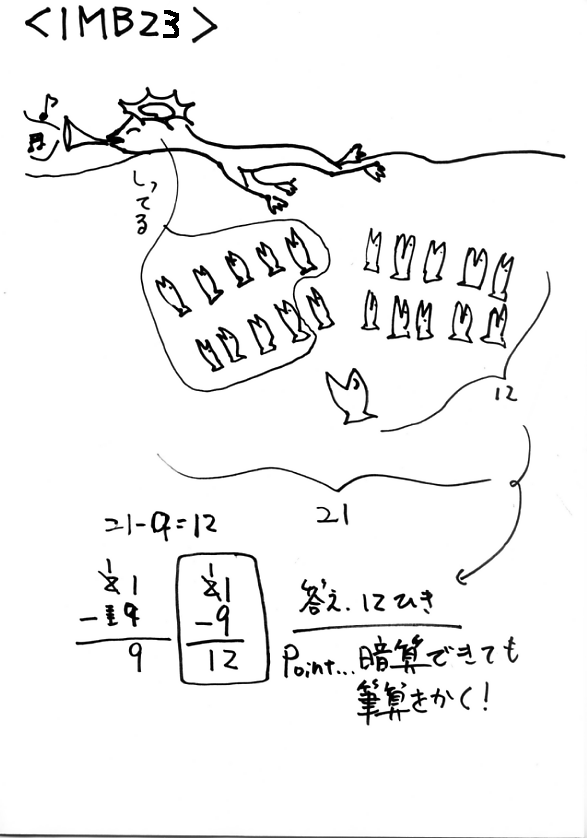 <IMB23>
しってる
12
21
21-9=12
21
-9
12
21
9
答え.12ひき
Point...暗算できても
筆算をかく!